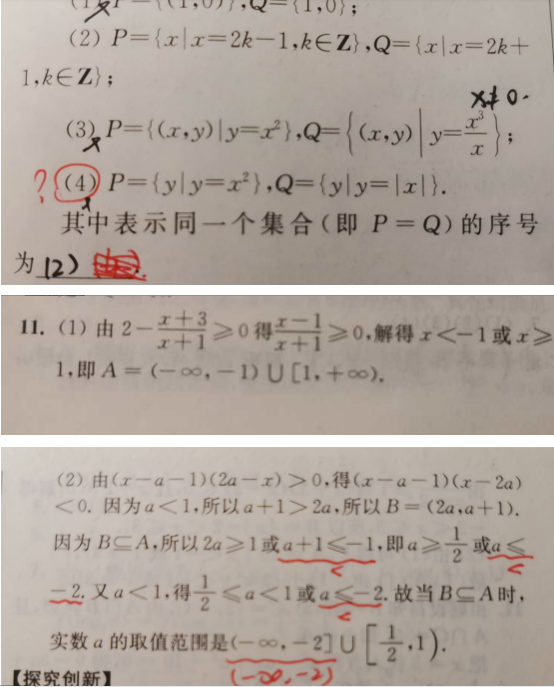 (1) P={(1,0)},Q={1,0};
(2) P={x|x=2k-1,k∈Z},Q={x|x=2k+
1,k∈Z};
x≠0.
(3) P={(x,y)|y=x²},Q={(x,y)|y=x³/x};
? (4) P={y|y=x²},Q={y|y=|x|}.
其中表示同一个集合(即 P=Q)的序号
为 (2)
11. (1) 由 2-(x+3)/(x+1)≥0得(x-1)/(x+1)≥0,解得 x<-1或 x≥
1,即 A=(-∞,-1)∪[1,+∞).
(2) 由(x-a-1)(2a-x)>0,得(x-a-1)(x-2a)
<0. 因为a<1,所以a+1>2a,所以 B=(2a,a+1).
因为 B⊆A,所以 2a≥1或a+1≤-1,即a≥1/2 或a≤
< <
-2. 又 a<1,得1/2≤a<1或a≤-2. 故当B⊆A时,
<
实数 a 的取值范围是(-∞,-2]∪[1/2,1).
(-∞,-2)
【探究创新】